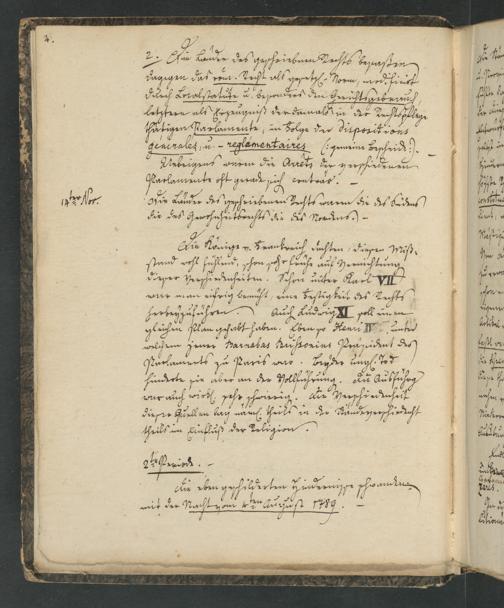 4.
2. Die Länder des geschriebenen Rechts besassen
dagegen das röm. Recht als gesetzl. Norm, modificirt
durch Localstatute u. besonders den Gerichtsgebrauch,
letzterer als Erzeugniss der damals in der Rechtspflege
thätigen Parlamente, in Folge der dispositions
generales, u. reglementaires (: gemeine Bescheide :). -
Uebrigens waren die Arrets der verschiedenen
Parlamente oft gerade sich conträr. -
14ter Nov.
Die Länder des geschriebenen Rechts waren die des Südens
die des Gewohnheitsrechts die des Nordens. -
Die Könige v. Frankreich dachten, diesen Miss-
stand wohl fühlend, schon sehr frühe auf Vernichtung
dieser Verschiedenheiten. Schon unter Karl VII
war man eifrig bemüht, eine Festigkeit des Rechts
herbeyzuführen. Auch Ludwig XI soll einen
gleichen Plan gehabt haben. Ebenso Henri IV unter
welchem jener Barnabas Brissonius Präsident des
Parlaments zu Paris war. Beyder Tod
hinderte sie aber an der Vollführung. Die Ausführg
war auch wirkl. sehr schwierig. Die Verschiedenheit
dieser Quellen lag naml. theils in der
theils im Einfluss der Religion.
2te Periode. -
Die eben geschilderten Hindernisse schwanden
mit der Nacht vom 4ten August 1789. -